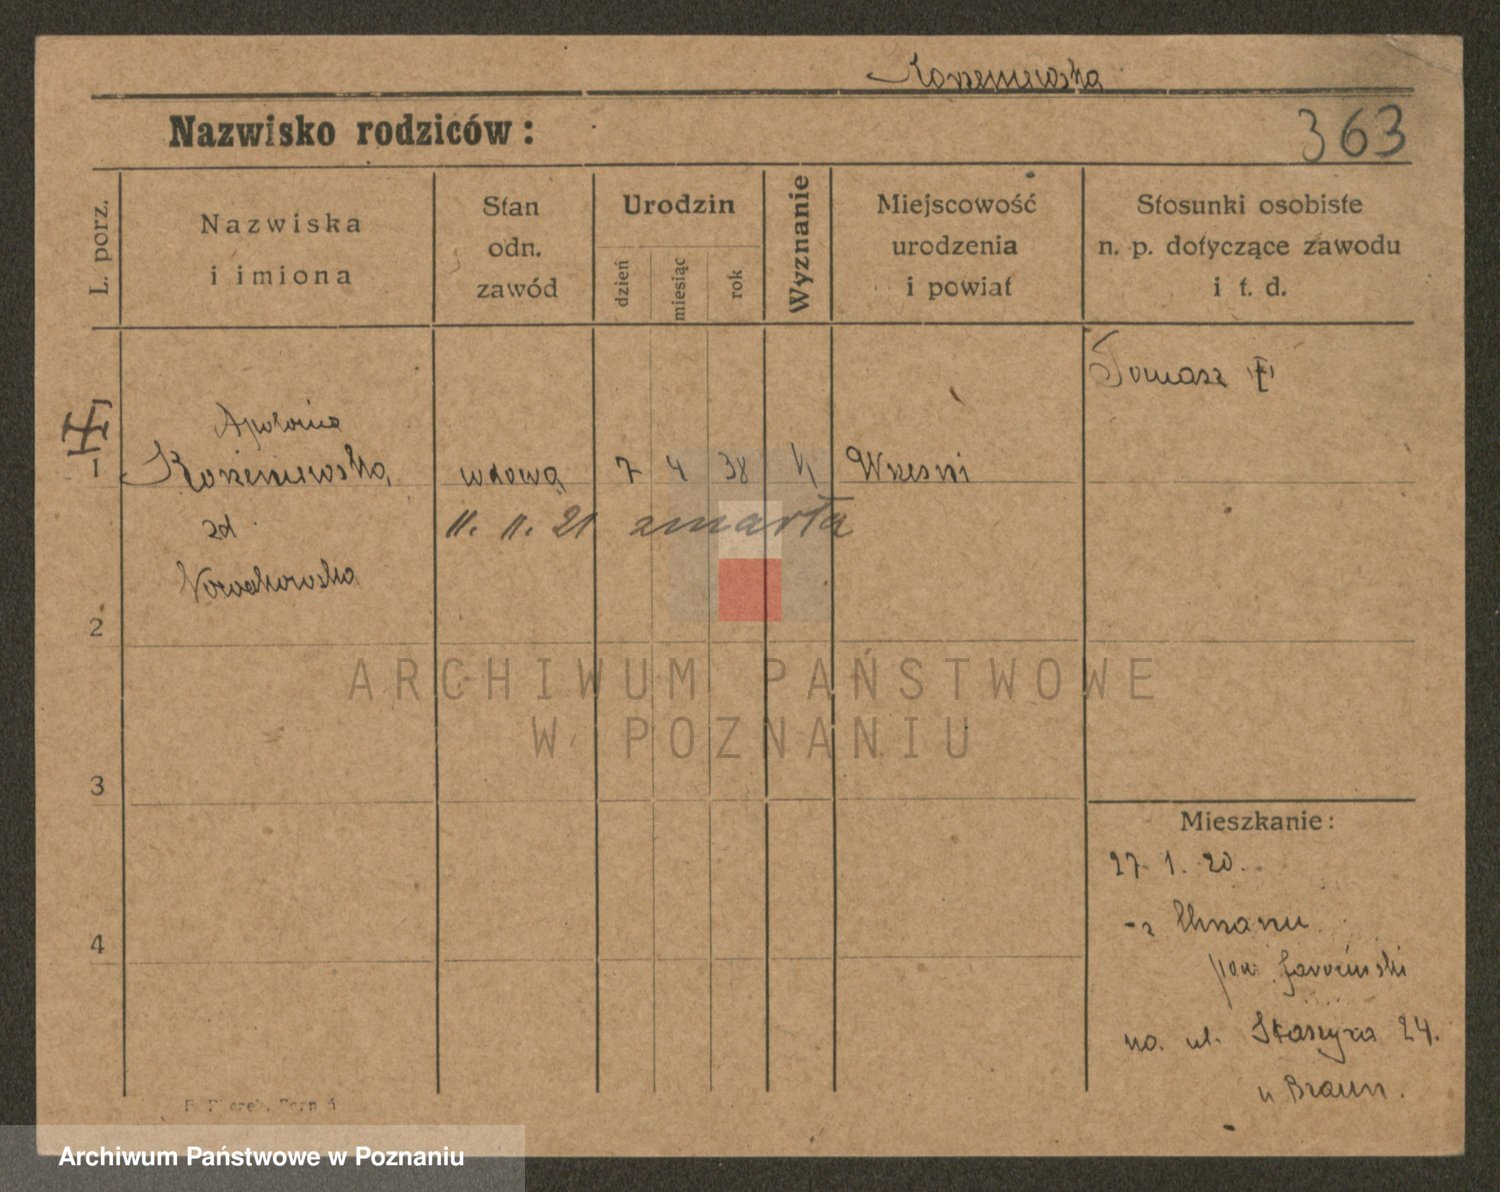 Korzeniewska
Nazwisko rodziców:
363
L. porz.
Nazwiska
i imiona
Stan
odn.
zawód
Urodzin
dzień
miesiąc
rok
Wyznanie
Miejscowość
urodzenia
i powiat
Stosunki osobiste
n. p. dotyczące zawodu
i t. d.
Tomasz
Apolonia
1 Korzeniewska, wdowa 7 4 38 Wrześni
zd
11. 11. 21 zmarła
2
ARCHIWUM PAŃSTWOWE
W POZNANIU
3
Mieszkanie:
27. 1. 20.
4
pow. Jarociński
na ul. Staszyca 24.
u Braun.
Archiwum Państwowe w Poznaniu